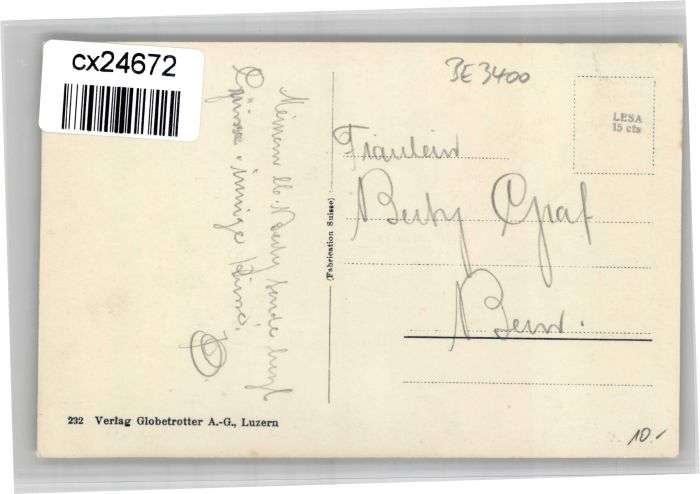 cx24672
BE3400
LESA
15 cts
Meinem lb. Berty sende herzl
Grüsse + innige Küsse.
(Fabrication Suisse)
Fräulein
Berty Graf
Bern.
232 Verlag Globetrotter A.-G., Luzern
10.-